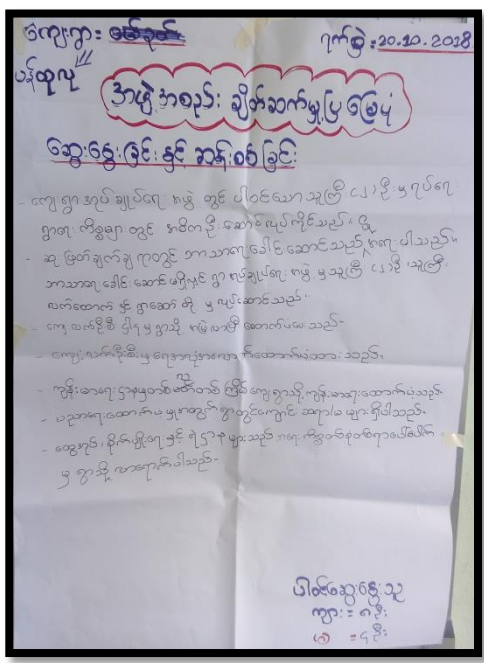 ကျေးရွာ:
ရက်စွဲ: 20.10.2018
ပန်ထုလု
အဖွဲ့အစည်း ချိတ်ဆက်မှုပြ မြေပုံ
ဆွေးနွေးခြင်း နှင့် ဆန်းစစ်ခြင်း
- ကျေးရွာအုပ်ချုပ်ရေး အဖွဲ့ တွင် ပါဝင်သော သူကြီး (၂) ဦး မှ ရပ်ရေး
ရွာရေး ကိစ္စများ တွင် အဓိက ဦးဆောင်လုပ်ကိုင်သည်။
- ဆုံးဖြတ်ချက်ချ ရာတွင် ဘာသာရေးခေါင်းဆောင်သည် အရေးပါသည်။
ဘာသာရေးခေါင်းဆောင် မရှိလျှင် ရွာအုပ်ချုပ်ရေး အဖွဲ့ မှ သူကြီး (၂) ဦး
လက်ထောက် နှင့် ရွာဆော် တို့ မှ လုပ်ဆောင်သည်။
- ကျေးလက်ဦးစီးဌါနမှ ရွာသို့ ထောက်ပံ့ပေးသည်။
- ကျေးလက်ဦးစီးမှ ထောက်ပံ့ထားသည်။
- ကျန်းမာရေးဌာနမှ တစ်လတစ်ကြိမ် ကျေးရွာသို့ ကျန်းမာရေးထောက်ပံ့သည်။
- ပညာရေးထောက်ပံ့မှုအတွက် ရွာတွင်ကျောင်း ဆရာ/မ များရှိပါသည်။
- ထွေအုပ်၊ စိုက်ပျိုးရေး နှင့် ရဲဌာန များသည် အရေးကိစ္စတစ်စုံတစ်ရာပေါ်ပေါက်
မှ ရွာသို့ လာရောက်ပါသည်။
ပါဝင်ဆွေးနွေးသူ
ကျား = ၈ ဦး
မ = ၄ ဦး